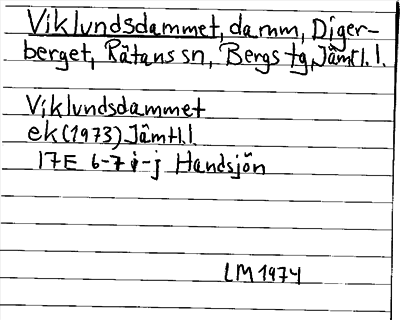 Viklundsdammet, damm, Diger-
berget, Rätans sn, Bergs tg, Jämtl. l.
Viklundsdammet
ek (1973) Jämtl. l
17E 6-7 i-j Handsjön
LM 1974